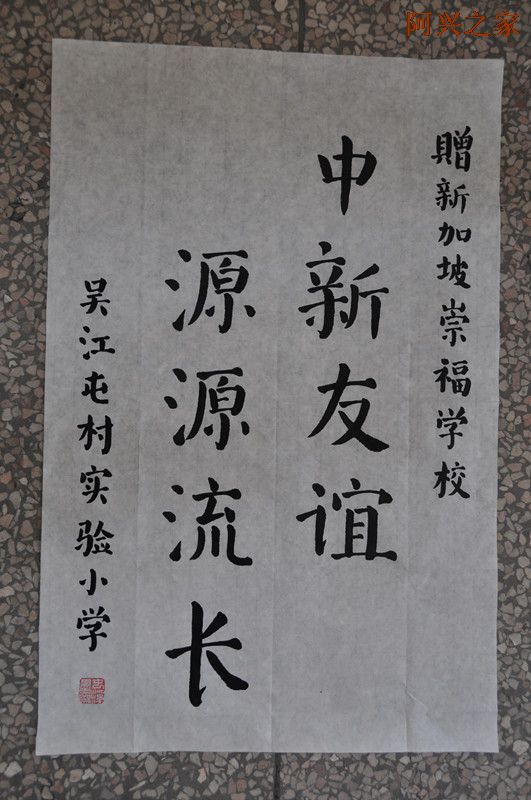 阿兴之家
贈新加坡崇福学校
中新友谊
源源流长
吴江屯村实验小学